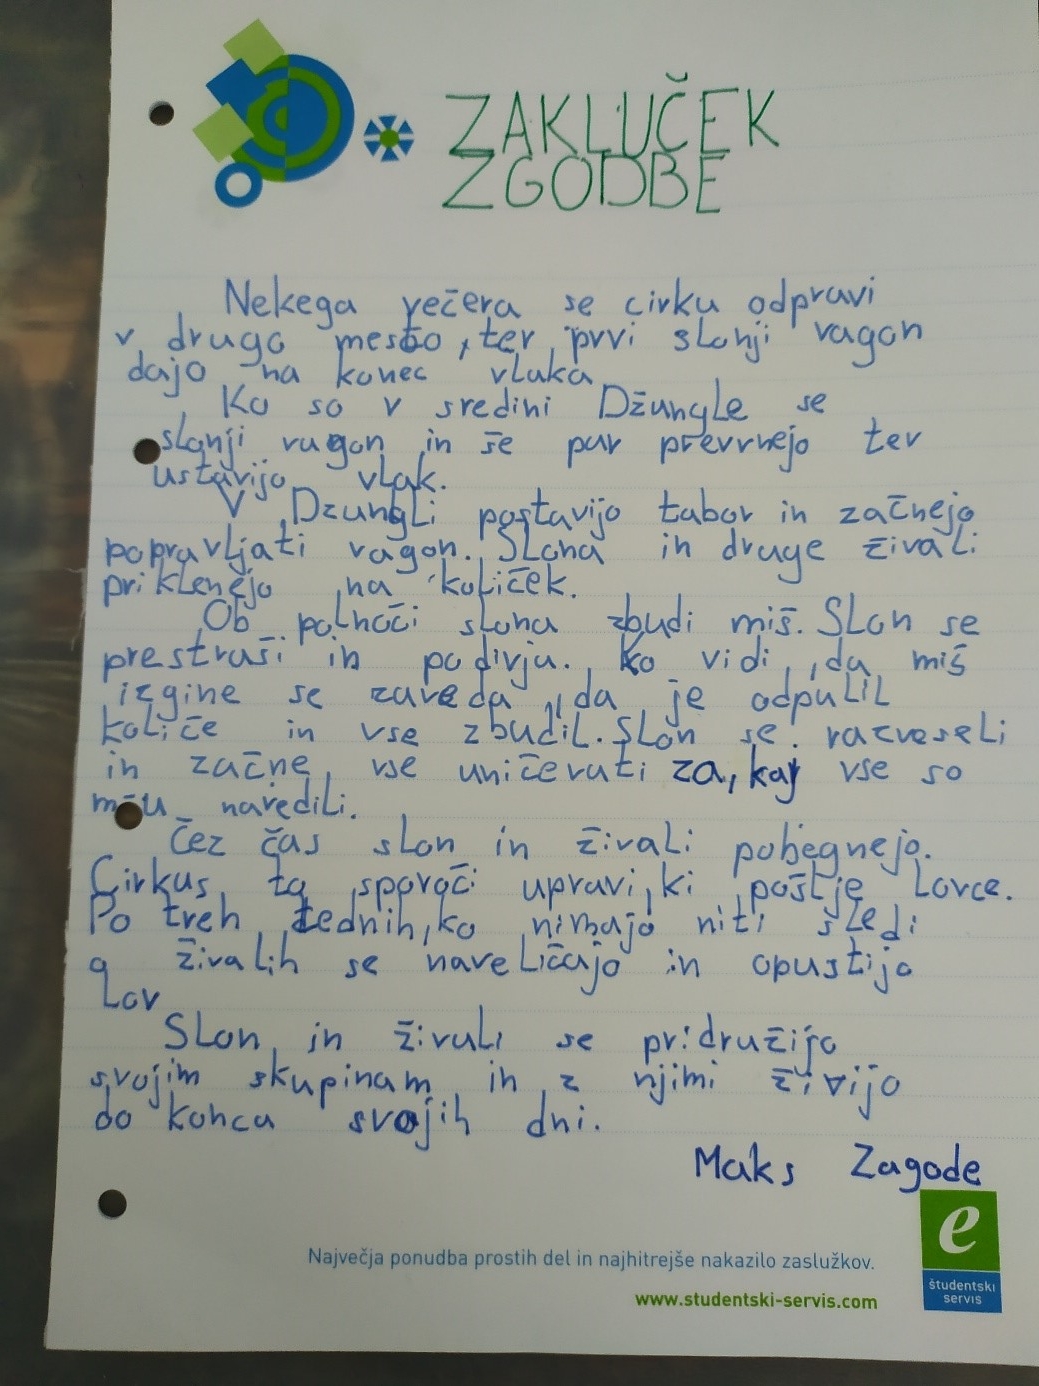 ZAKLUČEK
ZGODBE
Nekega večera se cirku odpravi
v drugo mesto, ter prvi slonji vagon
dajo na konec vlaka
Ko so v sredini Džungle se
slonji vagon in še par prevrnejo ter
ustavijo vlak.
V Džungli postavijo tabor in začnejo
popravljati vagon. Slona in druge živali
priklenejo na količek.
Ob polnoči slona zbudi miš. Slon se
prestraši in podivja. Ko vidi, da miš
izgine se zaveda, da je odpulil
količe in vse zbudil. Slon se razveseli
in začne vse uničevati za, kaj vse so
mu naredili.
Čez čas slon in živali pobegnejo.
Cirkus ta sporoči upravi, ki pošlje lovce.
Po treh tednih, ko nimajo niti sledi
o živalih se naveličajo in opustijo
lov
Slon in živali se pridružijo
svojim skupinam in z njimi živijo
do konca svojih dni.
Maks Zagode
e
Največja ponudba prostih del in najhitrejše nakazilo zaslužkov.
študentski
servis
www.studentski-servis.com